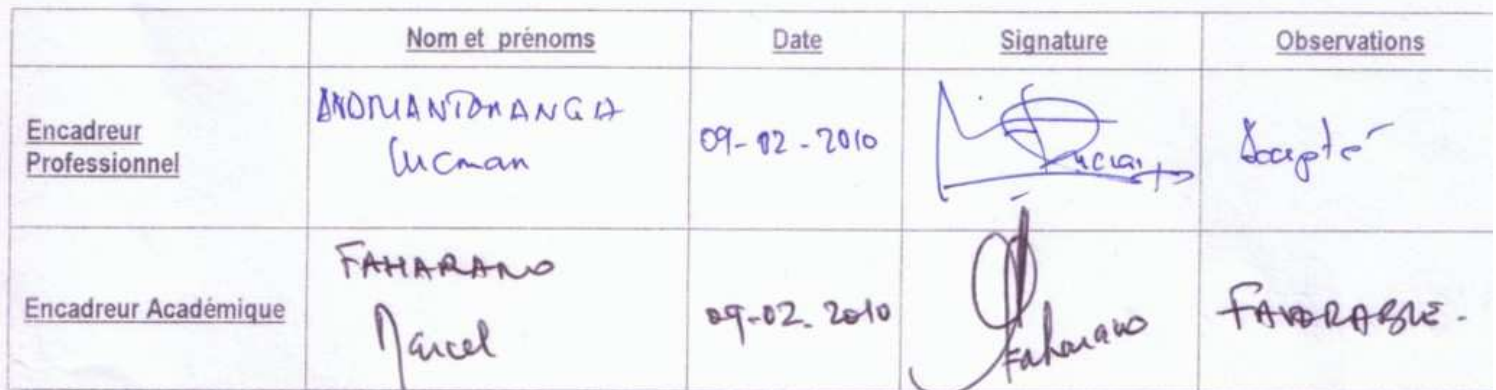 Nom et prénoms Date Signature Observations
Encadreur
Professionnel
09-02-2010
Accepté
Encadreur Académique
FAHARANO
Marcel
09-02.2010
Faharano
FAVORABLE.